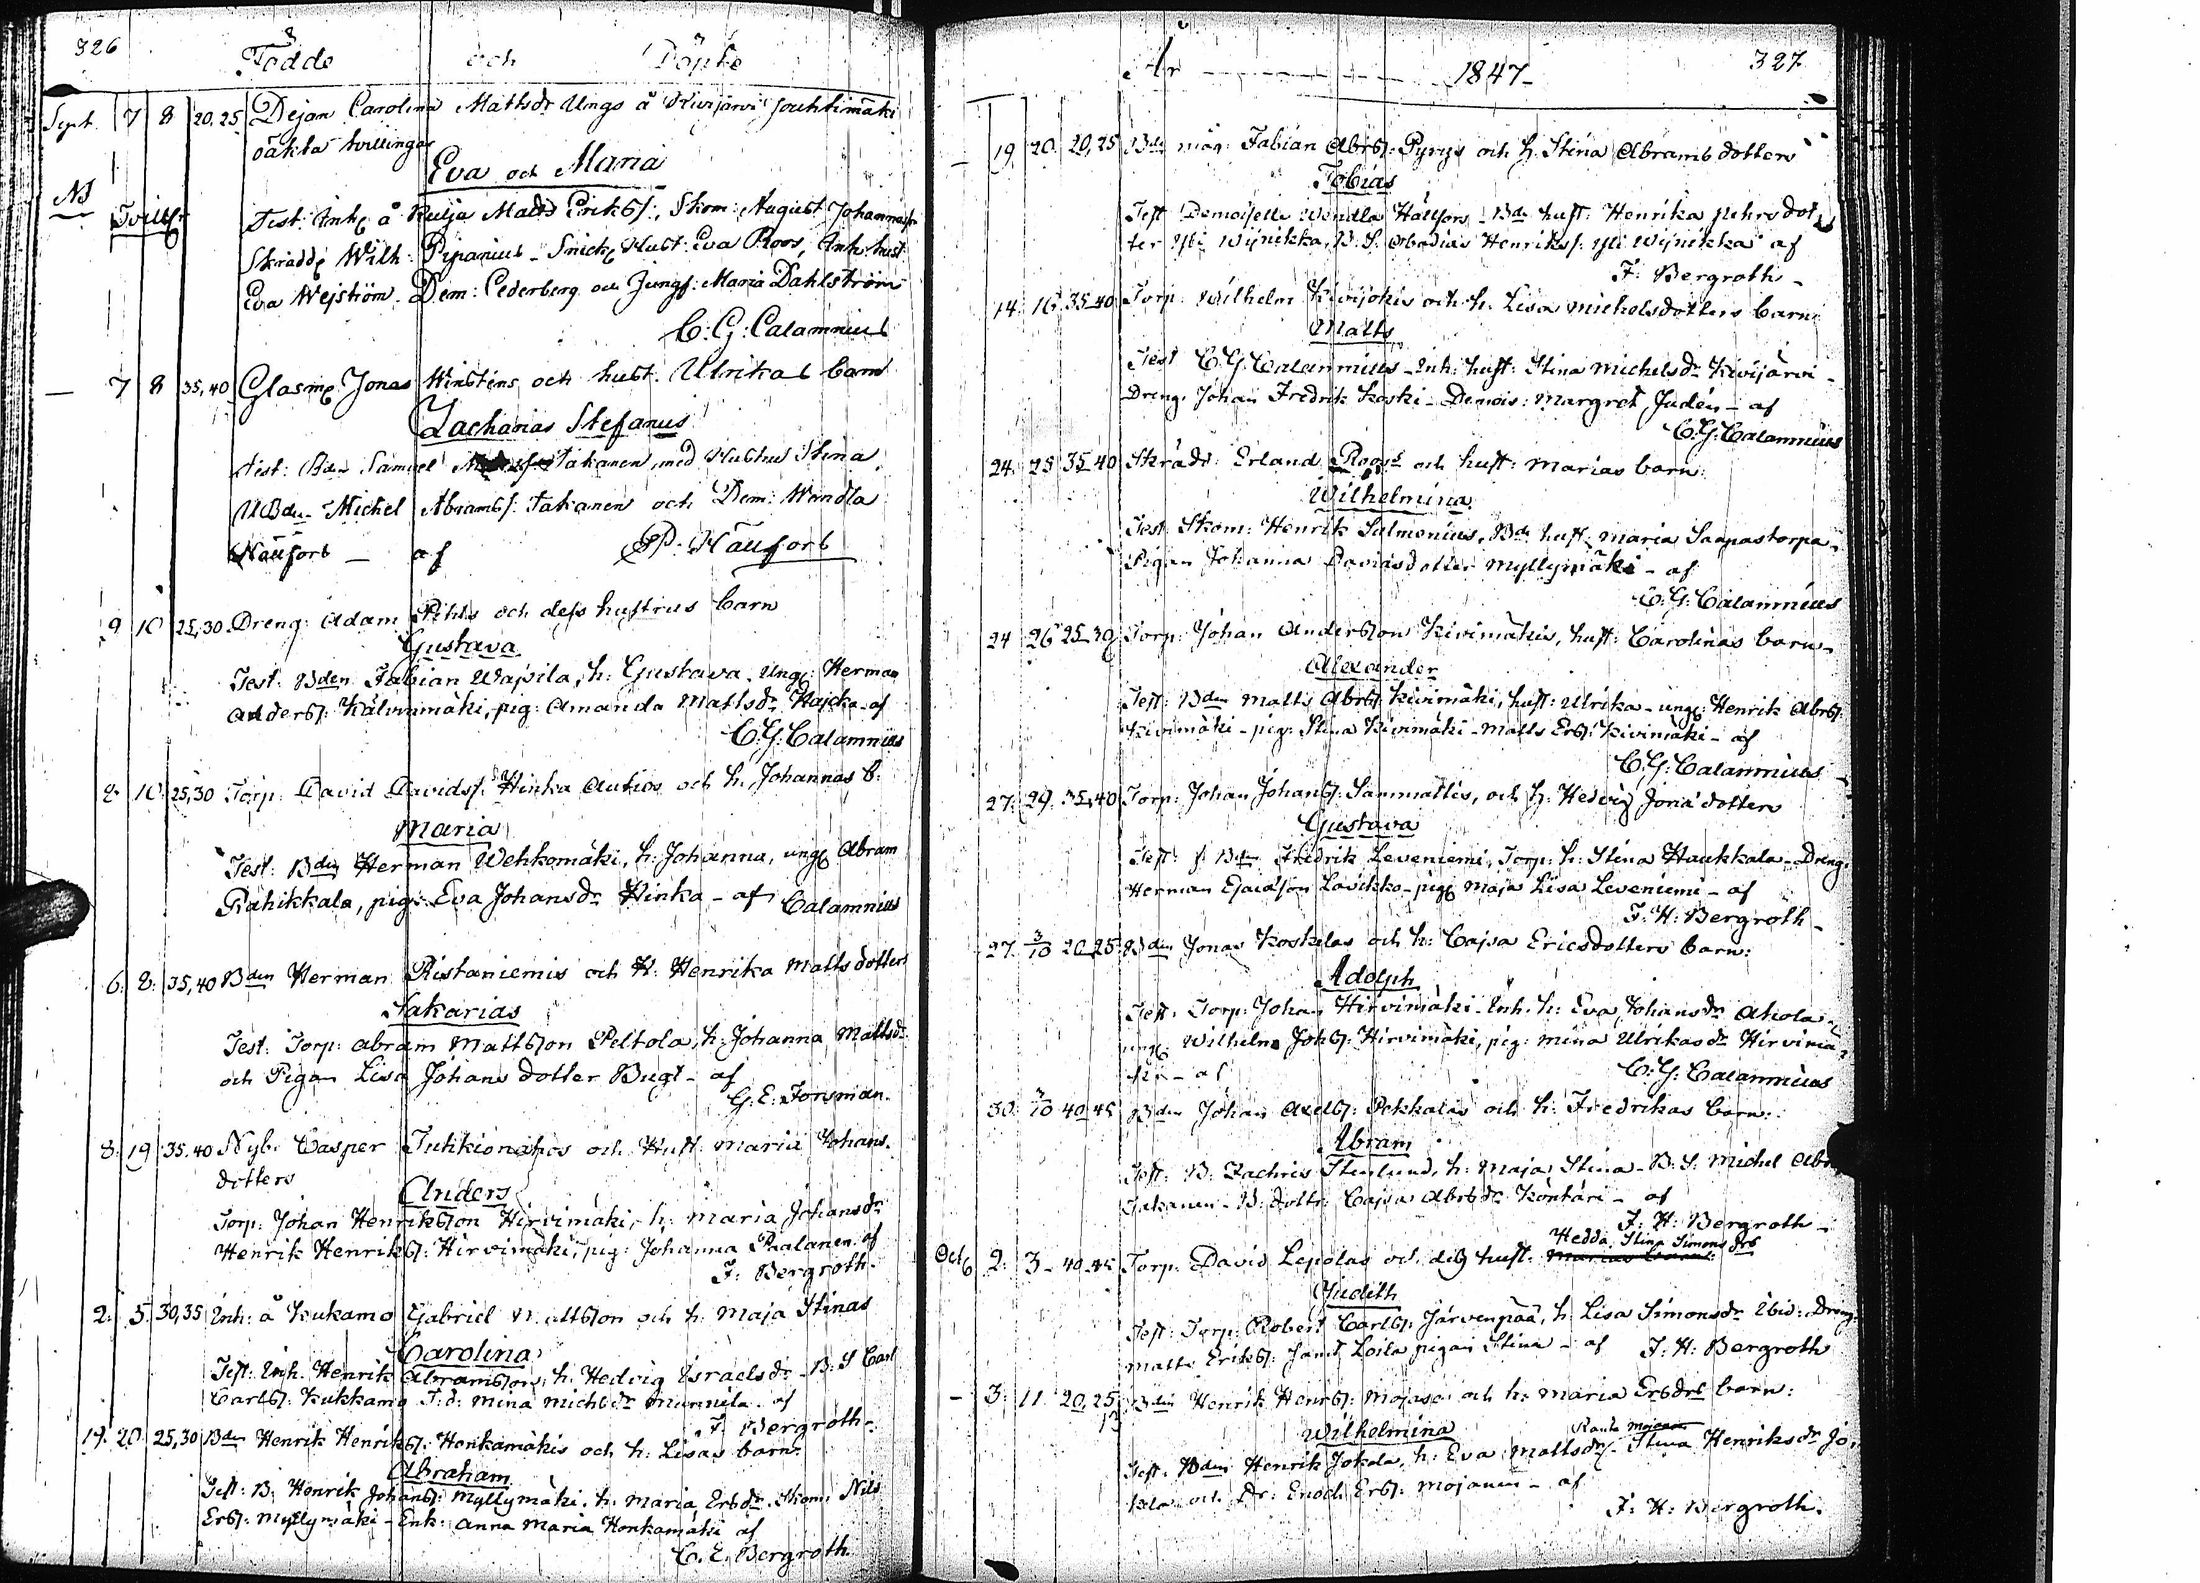 326
Födde och Döpte
Sept. 7 8 20.25 Dejan Carolina Mattsdr Ungs å Kivijärvi Jouhtimäki
oäkta tvillingar
Eva och Maria
Test: Inh: å Reilja Matts Eriks/:, Skom: August Johannss/
Skrädd: Wilh: Piponius - Snick: Hust: Eva Roos, Inh: hust
Eva Wejström. Dem: Cederberg och Jungf: Maria Dahlström
C: G: Calamnius
— 7 8 35,40 Glasm: Jonas Winsténs och hust. Ulrikas barn
Zacharias Stefanus
Test: Bdn Samuel Takanen, med Hustru Stina,
UBdn Michel Abrams/: Takanen och Dem: Wendla
Hällfors — af P: Hällfors
9 10 25,30 Dreng: Adam Pihls och dess hustrus barn
Gustava
Test: Bden Fabian Wapila, h: Gustava. Ung: Herman
Anders/: Kälvimäki, pig: Amanda Mattsdr Kajcka af
C: G: Calamnius
8. 10 25,30 Torp: David Davids/: Hinka Autios och h: Johannas b:
Maria
Test: Bdn Herman Wehkomäki, h: Johanna, ung: Abram
Rahikkala, pig: Eva Johansdr Hinka - af Calamnius
6: 8: 35,40 Bden Herman Ristaniemis och H: Henrika Mattsdotters
Sakarias
Test: Torp: Abram Mattsson Peltola, h: Johanna Mattsdr
och Pigan Lisa Johans dotter Bugt - af
G: E: Forsman.
8: 19 35.40 Nyb: Casper och Hust Maria Johans-
dotters
Anders
Torp: Johan Henriksson Hirvimäki, h: Maria Johansdr
Henrik Henriks/: Hirvimäki, pig: Johanna Ralanen af
F: Bergroth.
2: 5 30,35 Inh: å Kukamo Gabriel Mattsson och h: Maja Stinas
Carolina
Test: Inh. Henrik Abramsson, h: Hedvig Israelsdr - B: S Carl
Carls/: Kukkamo T: d: Mina Michsdr Munnila af
F: Bergroth.
19. 20 25,30 Bdn Henrik Henriks/: Honkamäkis och h: Lisas barn:
Abraham
Test: B: Henrik Johans/: Myllymäki. h: Maria Ersdr. Skom: Nils
Ers/: Myllymäki - Enk: Anna Maria Honkamäki af
C. E. Bergroth.
År 1847 327
19 20 20,25 Bdn måg: Fabian Abrs/: Pyrys och h. Stina Abrams dotters
Tobias
Test Demoiselle Wendla Hällfors - Bdn hust: Henrika Pehrs dot-
ter Yli Wijnikka, B. S. Obadias Henriks/: Yli Wijnikka af
F: Bergroth -
14. 16 35-40 Torp: Wilhelm Kivijokis och h. Lisa Michelsdotters barn
Matts
Test C: G: Calamnius - Inh: hust: Stina Michelsdr Kivijärvi -
Dreng. Johan Fredrik Koski - Demois: Margret Judén - af
C: G: Calamnius
24. 25 35-40 Skrädd: Erland Roos och hust: Marias barn:
Wilhelmina
Test: Skom: Henrik Salmenius, Bdn hust: Maria Saapastorpa -
Pigan Johanna Davidsdotter Myllymäki - af
C: G: Calamnius
24 26 25-30 Torp: Johan Andersson Kivimäkis, hust: Carolinas barn
Alexander
Test: Bden Matts Abrs/: Kivimäki, hust: Ulrika - ung: Henrik Abrs/:
Kivimäki - pig: Stina Kivimäki - Matts Ers/: Kivimäki - af
C: G: Calamnius
27: 29. 35,40 Torp: Johan Johans/: Sammattis, och h: Hedvig Jona dotters
Gustava
Test: f. Bdn Fredrik Leveniemi, Torp: h: Stina Haukkala - Dreng:
Herman Esaidson Lavikko - pig: Maja Lisa Leveniemi - af
F: H: Bergroth -
27. 3/10 20,25 Bden Jonas Koskelas och h: Cajsa Ericsdotters barn:
Adolph
Test: Torp: Johan Hirvimäki - Inh: h: Eva Johansdr Ahola -
ung: Wilhelm Johs/: Hirvimäki, pig: Mina Ulrikasdr Hirvimä-
ki - af C: G: Calamnius
30. 3/10 40 45 Bden Johan Axels/: Pekkalas och h: Fredrikas barn:
Abram
Test: B: Zachris Stenlund, h: Maja Stina - B: S: Michel Abr
Takanen - B: dottr: Cajsa Abrsdr Köntäri - af
F: H: Bergroth -
Hedda Stina Simons drs
Oct: 2: 3 - 40 45 Torp: David Lepolas och dess hust: Marias barn:
Judith
Test: Torp: Robert Carls/: Järvenpää, h: Lisa Simonsdr ibid: Dreng:
Matts Eriks/: samt Loila pigan Stina - af F: H: Bergroth
— 3: 11 20,25 Bden Henrik Henrs/: Mojase och h: Maria Ersdrs barn:
Wilhelmina
Test: Bden Henrik Jokela, h: Eva Mattsdr Stina Henriksdr Jo-
kela och Dr: Enoch Ers/: Mojanen - af
F: H: Bergroth.